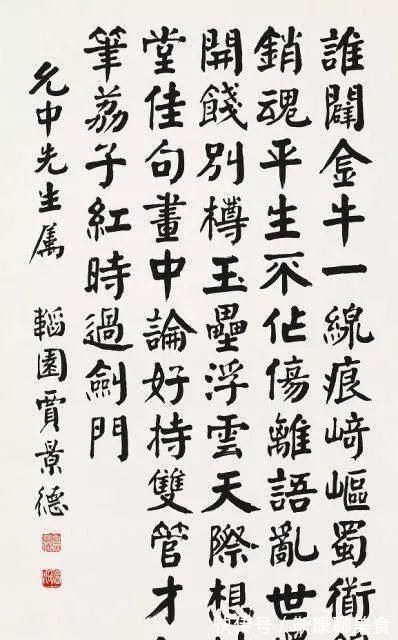 誰闢金牛一線痕崎嶇蜀衜
銷魂平生不作傷離語亂世
開餞別樽玉壘浮雲天際想
堂佳句畫中論好持雙管才
筆荔子紅時過劍門
允中先生属 韜園賈景德